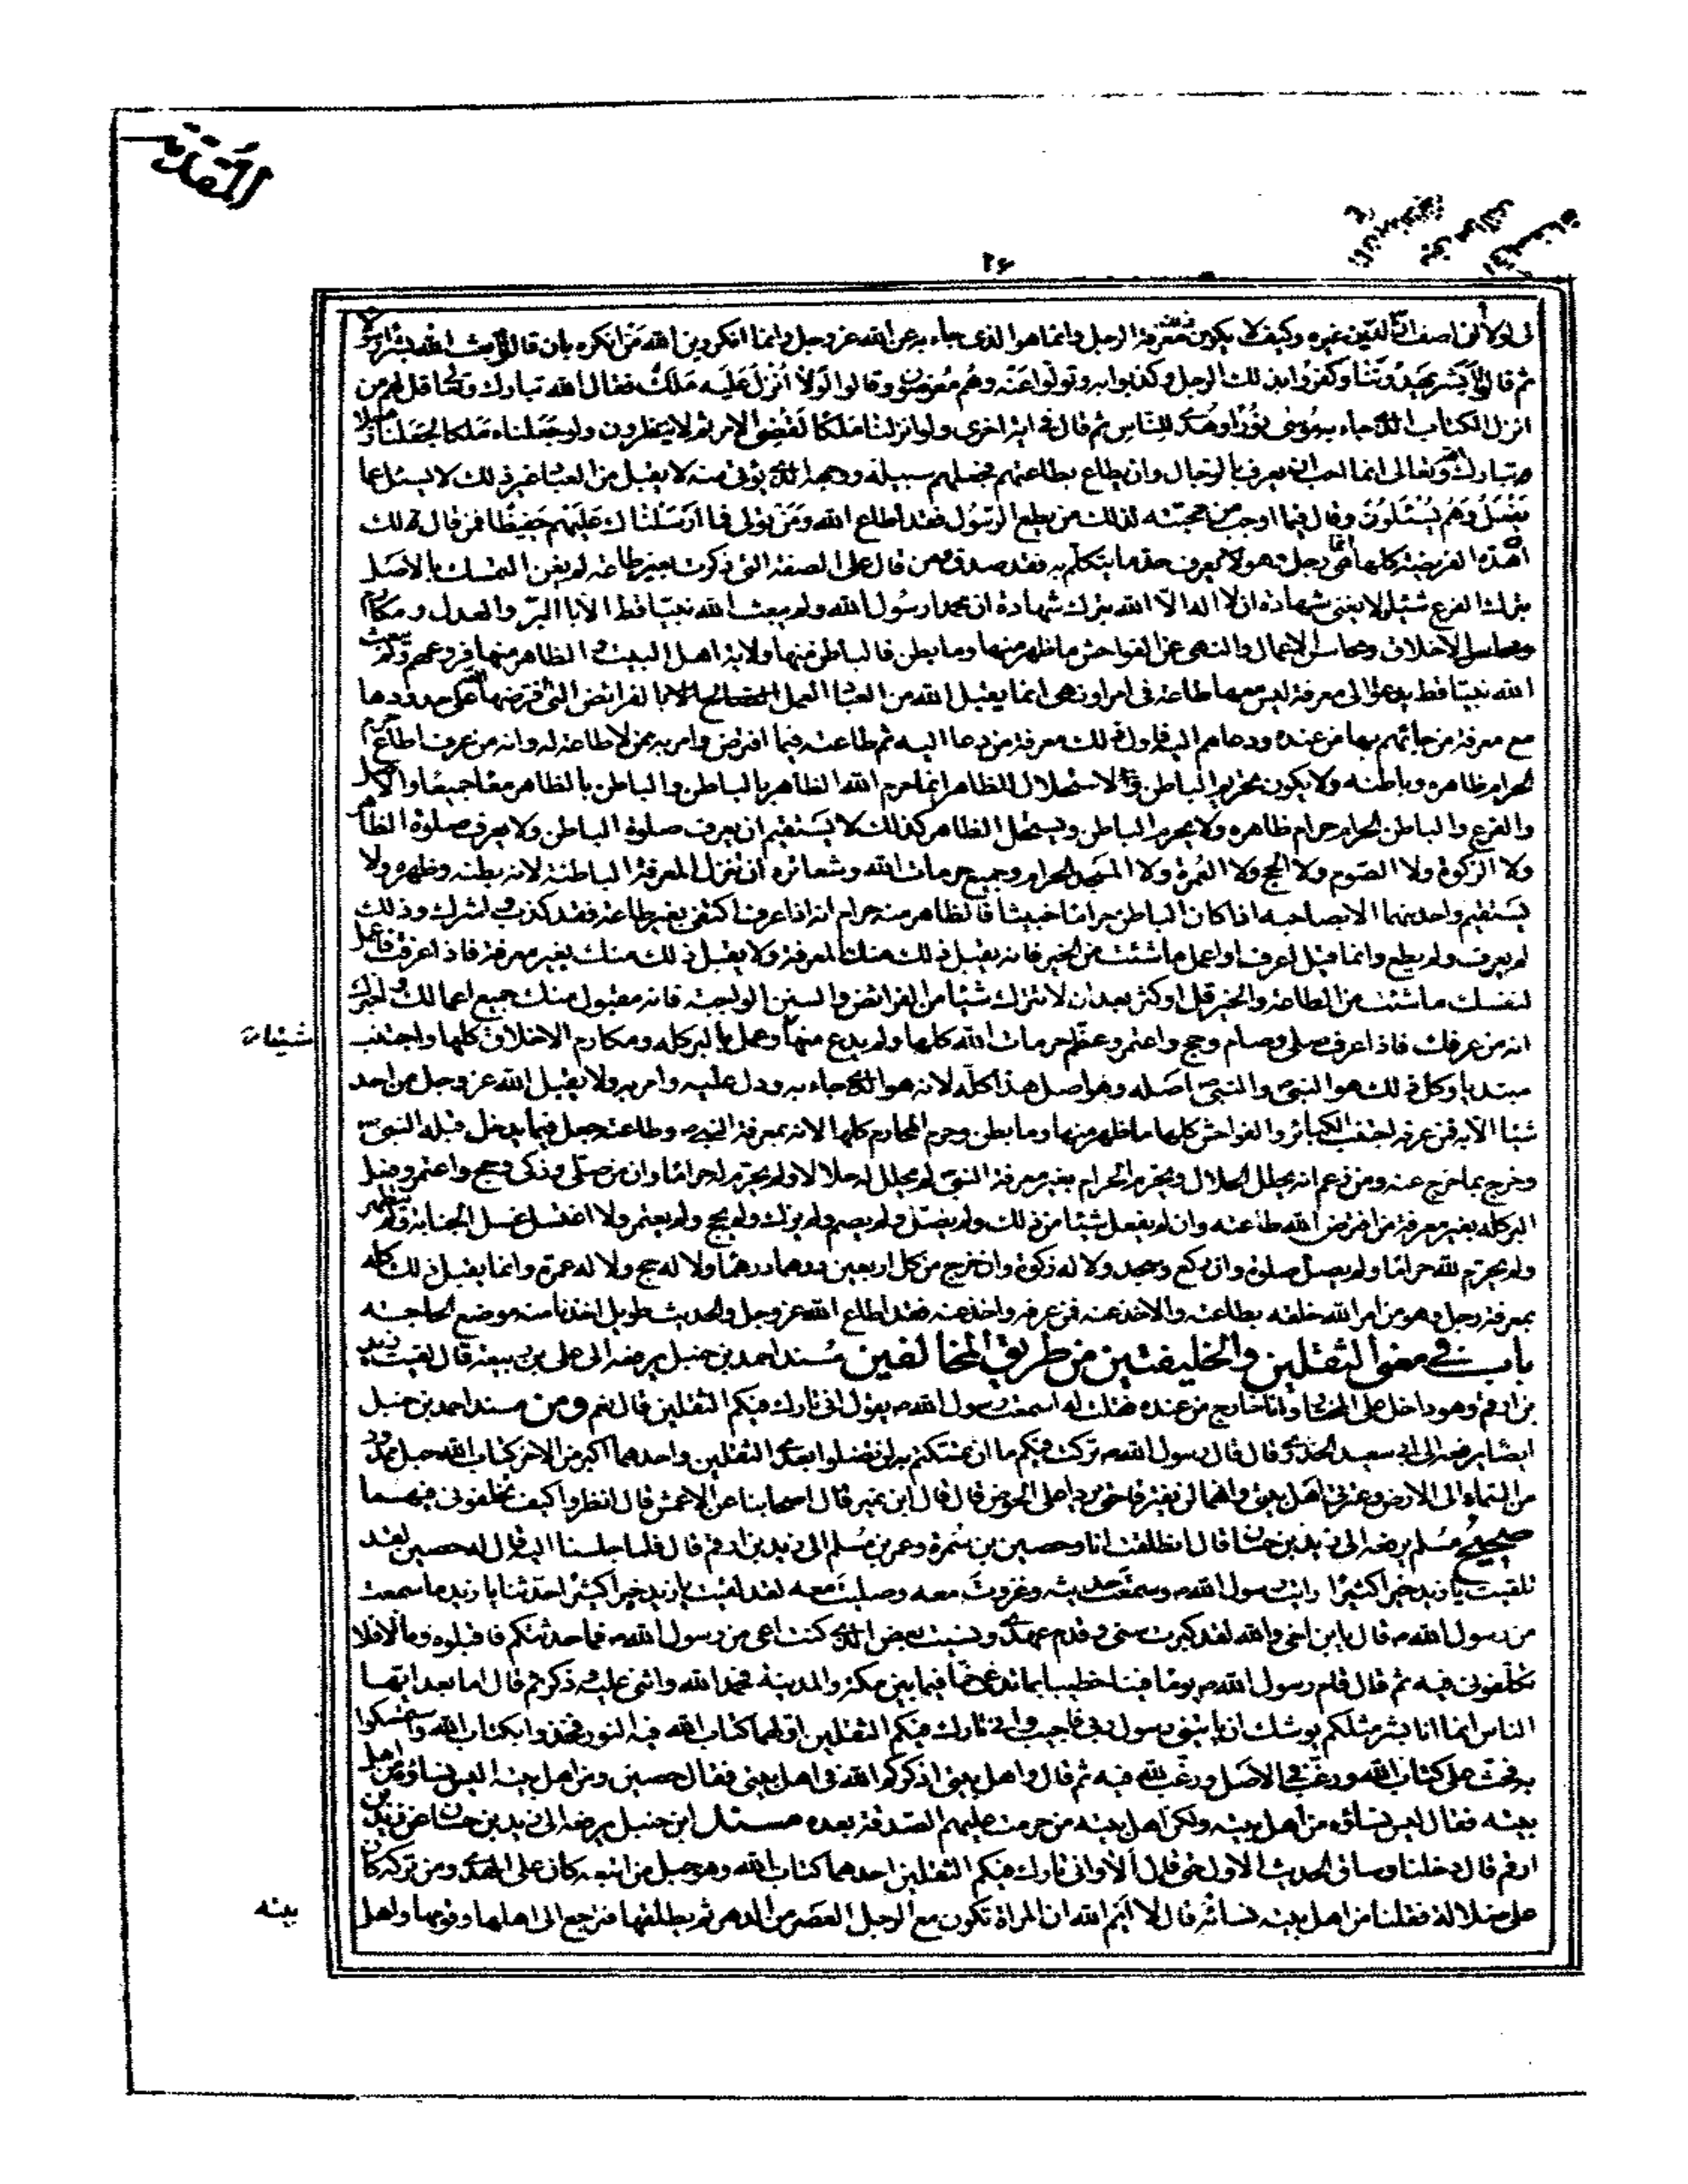 المقدمة
٢۶
لى اولا انى اصف ان الدين غيره وكيف لا يكون معرفة الرجل وانما هو الذى جاء به عن الله عز وجل وانما انكر دين الله من انكره بان قال ابعث الله بشرا رسولا
ثم قال ابشر يهدوننا وكفروا بذلك الرجل وكذبوا به وتولوا عنه وهم معرضون وقالوا لولا انزل عليه ملك فقال الله تبارك وتعالى قل لهم من
انزل الكتاب الذى جاء به موسى نورا وهدى للناس ثم قال فى اية اخرى ولو انزلنا ملكا لقضى الامر ثم لا ينظرون ولو جعلناه ملكا لجعلناه رجلا
تبارك وتعالى انما احب ان يعرف بالرجال وان يطاع بطاعتهم فجعلهم سبيله ووجهه الذى يؤتى منه لا يقبل من العباد غير ذلك لا يسئل عما
يفعل وهم يسئلون وقال فيما اوجب من محبته لذلك من يطع الرسول فقد اطاع الله ومن تولى فما ارسلناك عليهم حفيظا فمن قال لك
ان هذه الفريضة كلها انما هى رجل وهو لا يعرف حد ما يتكلم به فقد صدق ومن قال على الصفة التى ذكرت بغير طاعة لم يغن التمسك بالاصل
بترك الفرع شيئا ولا يغنى شهادة ان لا اله الا الله بترك شهادة ان محمدا رسول الله ولم يبعث الله نبيا قط الا بالبر والعدل ومكارم
ومحاسن الاخلاق ومحاسن الاعمال والنهى عن الفواحش ما ظهر منها وما بطن فالباطن منها ولاية اهل الباطل والظاهر منها فروعهم ولم يبعث
الله نبيا قط يدعو الى معرفة ليس معها طاعة فى امر او نهى انما يقبل الله من العباد العمل بالفرائض التى افترضها الله على حدودها
مع معرفة من جائهم بها من عنده ودعاهم اليه فاول ذلك معرفة من دعا اليه ثم طاعته فيما افترض وامر به ممن لا طاعة له وانه من عرف اطاع حرم
الحرام ظاهره وباطنه ولا يكون تحريم الباطن والاستحلال للظاهر انما حرم الله الظاهر بالباطن والباطن بالظاهر معا جميعا والاصل
والفرع والباطن الحرام حرام ظاهره ولا يحرم الباطن ويستحل الظاهر كذلك لا يستقيم ان يعرف صلوة الباطن ولا يعرف صلوة الظاهر
ولا الزكوة ولا الصوم ولا الحج ولا العمرة ولا المسجد الحرام وجميع حرمات الله وشعائره ان تترك لمعرفة الباطنة لانه بطنه وظهره ولا
يستقيم واحد منهما الا بصاحبه اذا كان الباطن حراما خبيثا فالظاهر منه حرام انه اذا عرف اكتفى بغير طاعة فقد كذب واشرك وذلك
لم يعرف ولم يطع وانما قيل اعرف واعمل ما شئت من الخير فانه يقبل ذلك منك بالمعرفة ولا يقبل ذلك منك بغير معرفة فاذا عرفت فاعمل
لنفسك ما شئت من الطاعة والخير قل او كثر بعد ان لا تترك شيئا من الفرائض والسنن الواجبة فانه مقبول منك جميع اعمالك واخبرك
انه من عرف فاذا عرف صلى وصام وحج واعتمر وعظم حرمات الله كلها ولم يدع منها وعمل بالبر كله ومكارم الاخلاق كلها واجتنب
شيئا
مبتدء وكل ذلك هو النبى والنبى اصله وهو اصل هذا كله لانه هو الذى جاء به ودل عليه وامر به ولا يقبل الله عز وجل من احد
شيئا الا به فمن عرفه اجتنب الكبائر والفواحش كلها ما ظهر منها وما بطن وحرم المحارم كلها الا بمعرفة النبى وطاعته دخل فيما دخل فيه النبى
وخرج مما خرج عنه ومن زعم انه يحلل الحلال ويحرم الحرام بغير معرفة النبى لم يحلل لله حلالا ولم يحرم له حراما وان من صلى وزكى وحج واعتمر وفعل
البر كله بغير معرفة من افترض الله طاعته وان لم يفعل شيئا من ذلك ولم يصل ولم يصم ولم يزك ولم يحج ولم يعتمر ولا اغتسل غسل الجنابة ولم يتطهر
ولم يحرم لله حراما ولم يصل صلوة وان ركع وسجد ولا له زكوة وان اخرج من كل اربعين درهما درهما ولا له حج ولا له عمرة وانما يقبل ذلك كله
بمعرفة رجل وهو من امر الله خلقه بطاعته والاخذ عنه فمن عرفه واخذ عنه فقد اطاع الله عز وجل والحديث طويل اخذنا منه موضع الحاجة
باب فى معنى الثقلين والخليفتين من طريق المخالفين مسند احمد بن حنبل يرفعه الى على بن ربيعة قال لقيت زيد
بن ارقم وهو داخل على المختار وانا خارج من عنده فقلت له اسمعت رسول الله ص يقول انى تارك فيكم الثقلين قال نعم ومن مسند احمد بن حنبل
ايضا يرفعه الى ابى سعيد الخدرى قال قال رسول الله ص تركت فيكم ما ان تمسكتم به لن تضلوا بعدى الثقلين واحدهما اكبر من الاخر كتاب الله حبل ممدود
من السماء الى الارض وعترتى اهل بيتى وانهما لن يفترقا حتى يردا على الحوض قال قال ابن نمير قال اصحابنا عن الاعمش قال انظروا كيف تخلفونى فيهما
صحيح مسلم يرفعه الى زيد بن حسان قال انطلقت انا وحصين بن سمرة وعمر بن مسلم الى زيد بن ارقم قال فلما جلسنا اليه قال له حصين لقد
لقيت يا زيد خيرا كثيرا رايت رسول الله ص وسمعت حديثه وغزوت معه وصليت معه لقد لقيت يا زيد خيرا كثيرا حدثنا يا زيد ما سمعت
من رسول الله ص قال يا ابن اخى والله لقد كبرت سنى وقدم عهدى ونسيت بعض الذى كنت اعى من رسول الله ص فما حدثتكم فاقبلوه وما لا فلا
تكلفونى فيه ثم قال قام رسول الله ص يوما فينا خطيبا بماء يدعى خما فيما بين مكة والمدينة فحمد الله واثنى عليه وذكر ثم قال اما بعد ايها
الناس انما انا بشر مثلكم يوشك ان ياتينى رسول ربى فاجيب وانى تارك فيكم الثقلين اولهما كتاب الله فيه النور فخذوا بكتاب الله واستمسكوا
به فحث على كتاب الله ورغب فى الاصل ورغب الله فيه ثم قال واهل بيتى اذكركم الله فى اهل بيتى فقال حصين ومن اهل بيته اليس نساؤه من اهل
بيته فقال ليس نساؤه من اهل بيته ولكن اهل بيته من حرمت عليهم الصدقة بعده مسند ابن حنبل يرفعه الى زيد بن حسان عن زيد بن
ارقم قال دخلنا وساق الحديث الاول حتى قال الا وانى تارك فيكم الثقلين احدهما كتاب الله وهو حبل من اتبعه كان على الهدى ومن تركه كان
على ضلالة فقلنا من اهل بيته نسائه قال لا ايم الله ان المراة تكون مع الرجل العصر من الدهر ثم يطلقها فترجع الى اهلها وقومها واهل
بيته